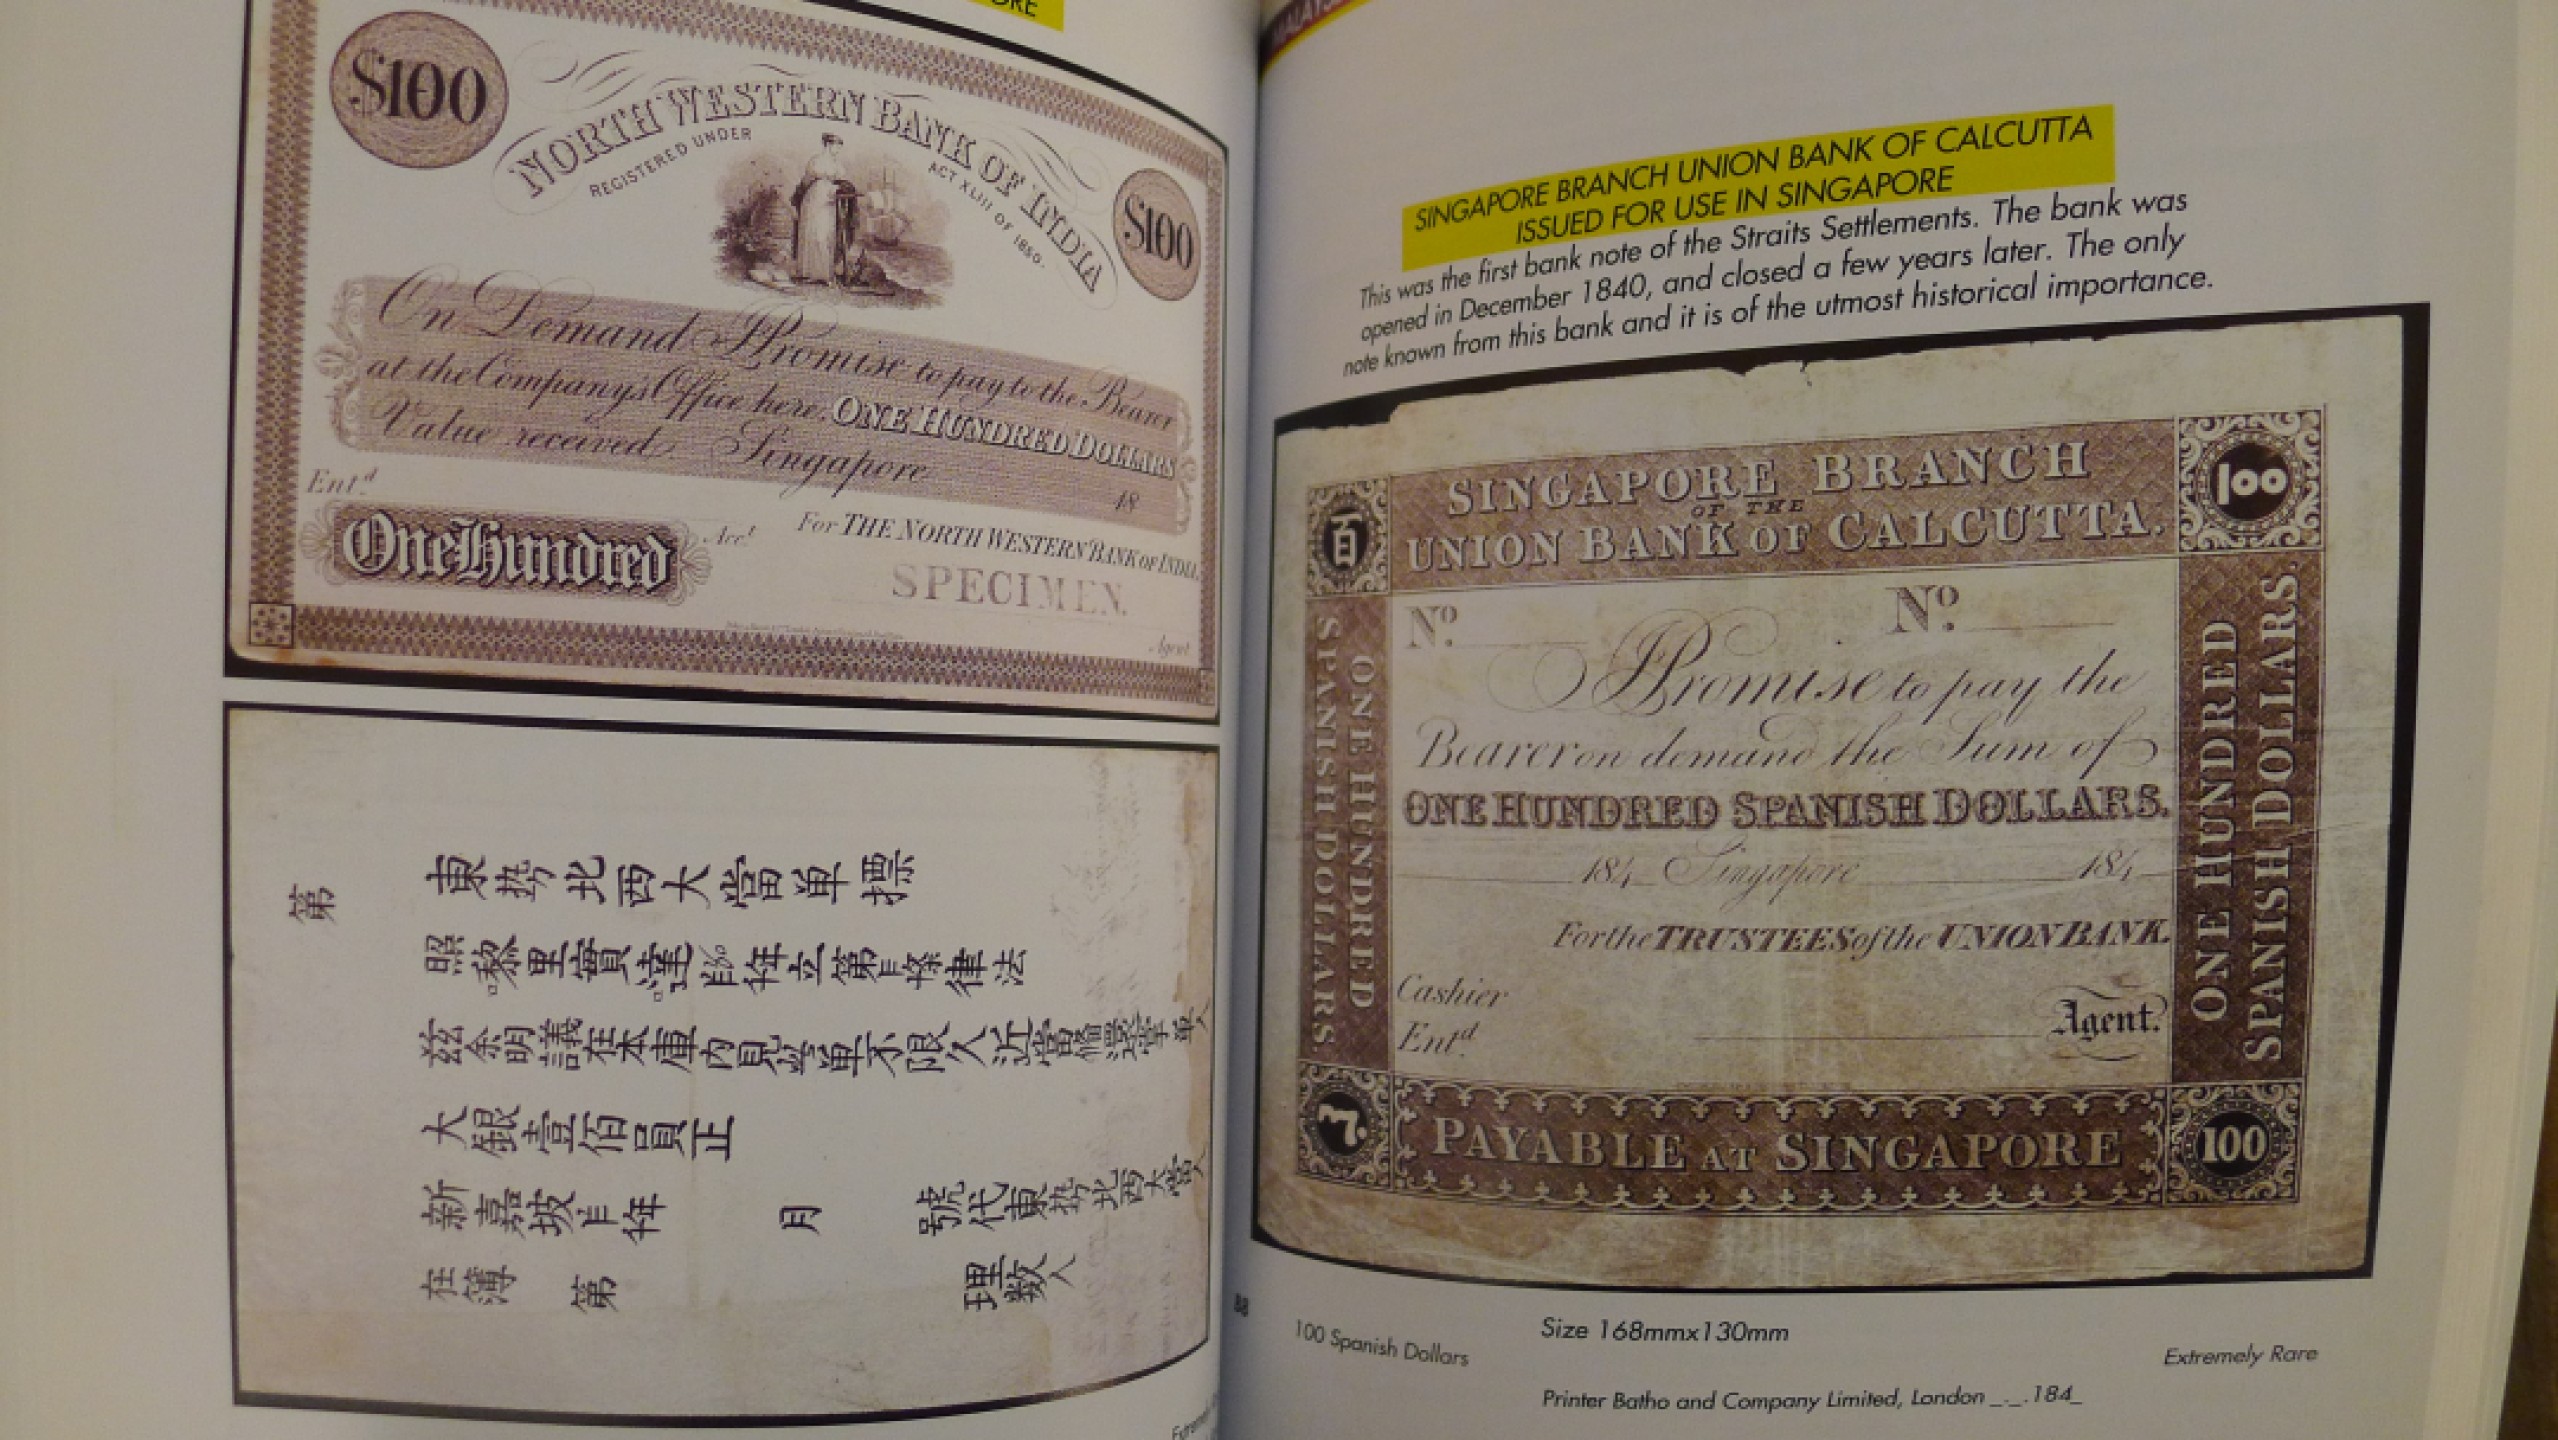 ORE
$100
NORTH WESTERN BANK OF INDIA
REGISTERED UNDER ACT XLIII OF 1850.
$100
On Demand I Promise to pay to the Bearer
at the Company's Office here, ONE HUNDRED DOLLARS
Value received. Singapore 18
Entd
One Hundred
Acct
For THE NORTH WESTERN BANK OF INDIA,
SPECIMEN.
Agent
第
東 北西大當單票
照 里 達 年立第 條律法
茲余明議在本庫內見 單不限久近當
大銀壹佰員正
新嘉坡 年 月 號代東 北西大當人
在簿 第 理数人
MALAYS
SINGAPORE BRANCH UNION BANK OF CALCUTTA
ISSUED FOR USE IN SINGAPORE
This was the first bank note of the Straits Settlements. The bank was
opened in December 1840, and closed a few years later. The only
note known from this bank and it is of the utmost historical importance.
百
SINGAPORE BRANCH
OF THE
UNION BANK OF CALCUTTA.
100
No. No.
I Promise to pay the
Bearer on demand the Sum of
ONE HUNDRED SPANISH DOLLARS.
184_ Singapore 184_
For the TRUSTEES of the UNION BANK.
Cashier
Entd.
Agent.
ONE HUNDRED
SPANISH DOLLARS
ONE HUNDRED
SPANISH DOLLARS.
PAYABLE AT SINGAPORE
100
88
100 Spanish Dollars
Size 168mmx130mm
Extremely Rare
Printer Batho and Company Limited, London _._.184_